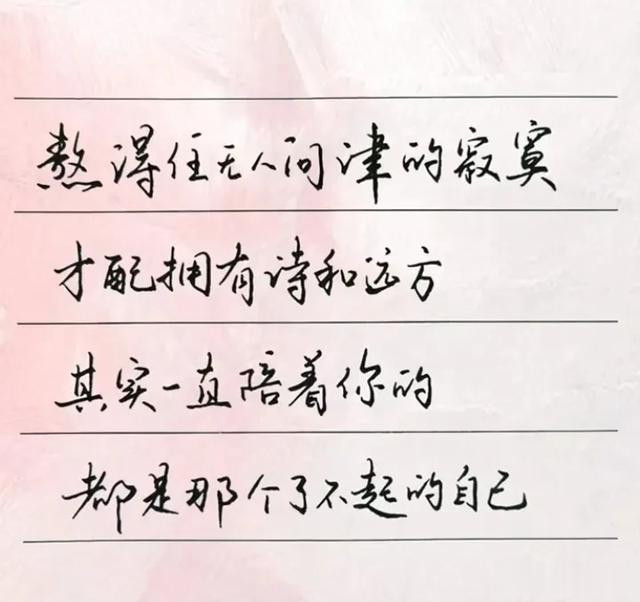 熬得住无人问津的寂寞
才配拥有诗和远方
其实一直陪着你的
都是那个了不起的自己